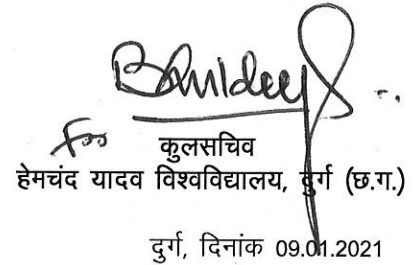 For
कुलसचिव
हेमचंद यादव विश्वविद्यालय, दुर्ग (छ.ग.)
दुर्ग, दिनांक 09.01.2021